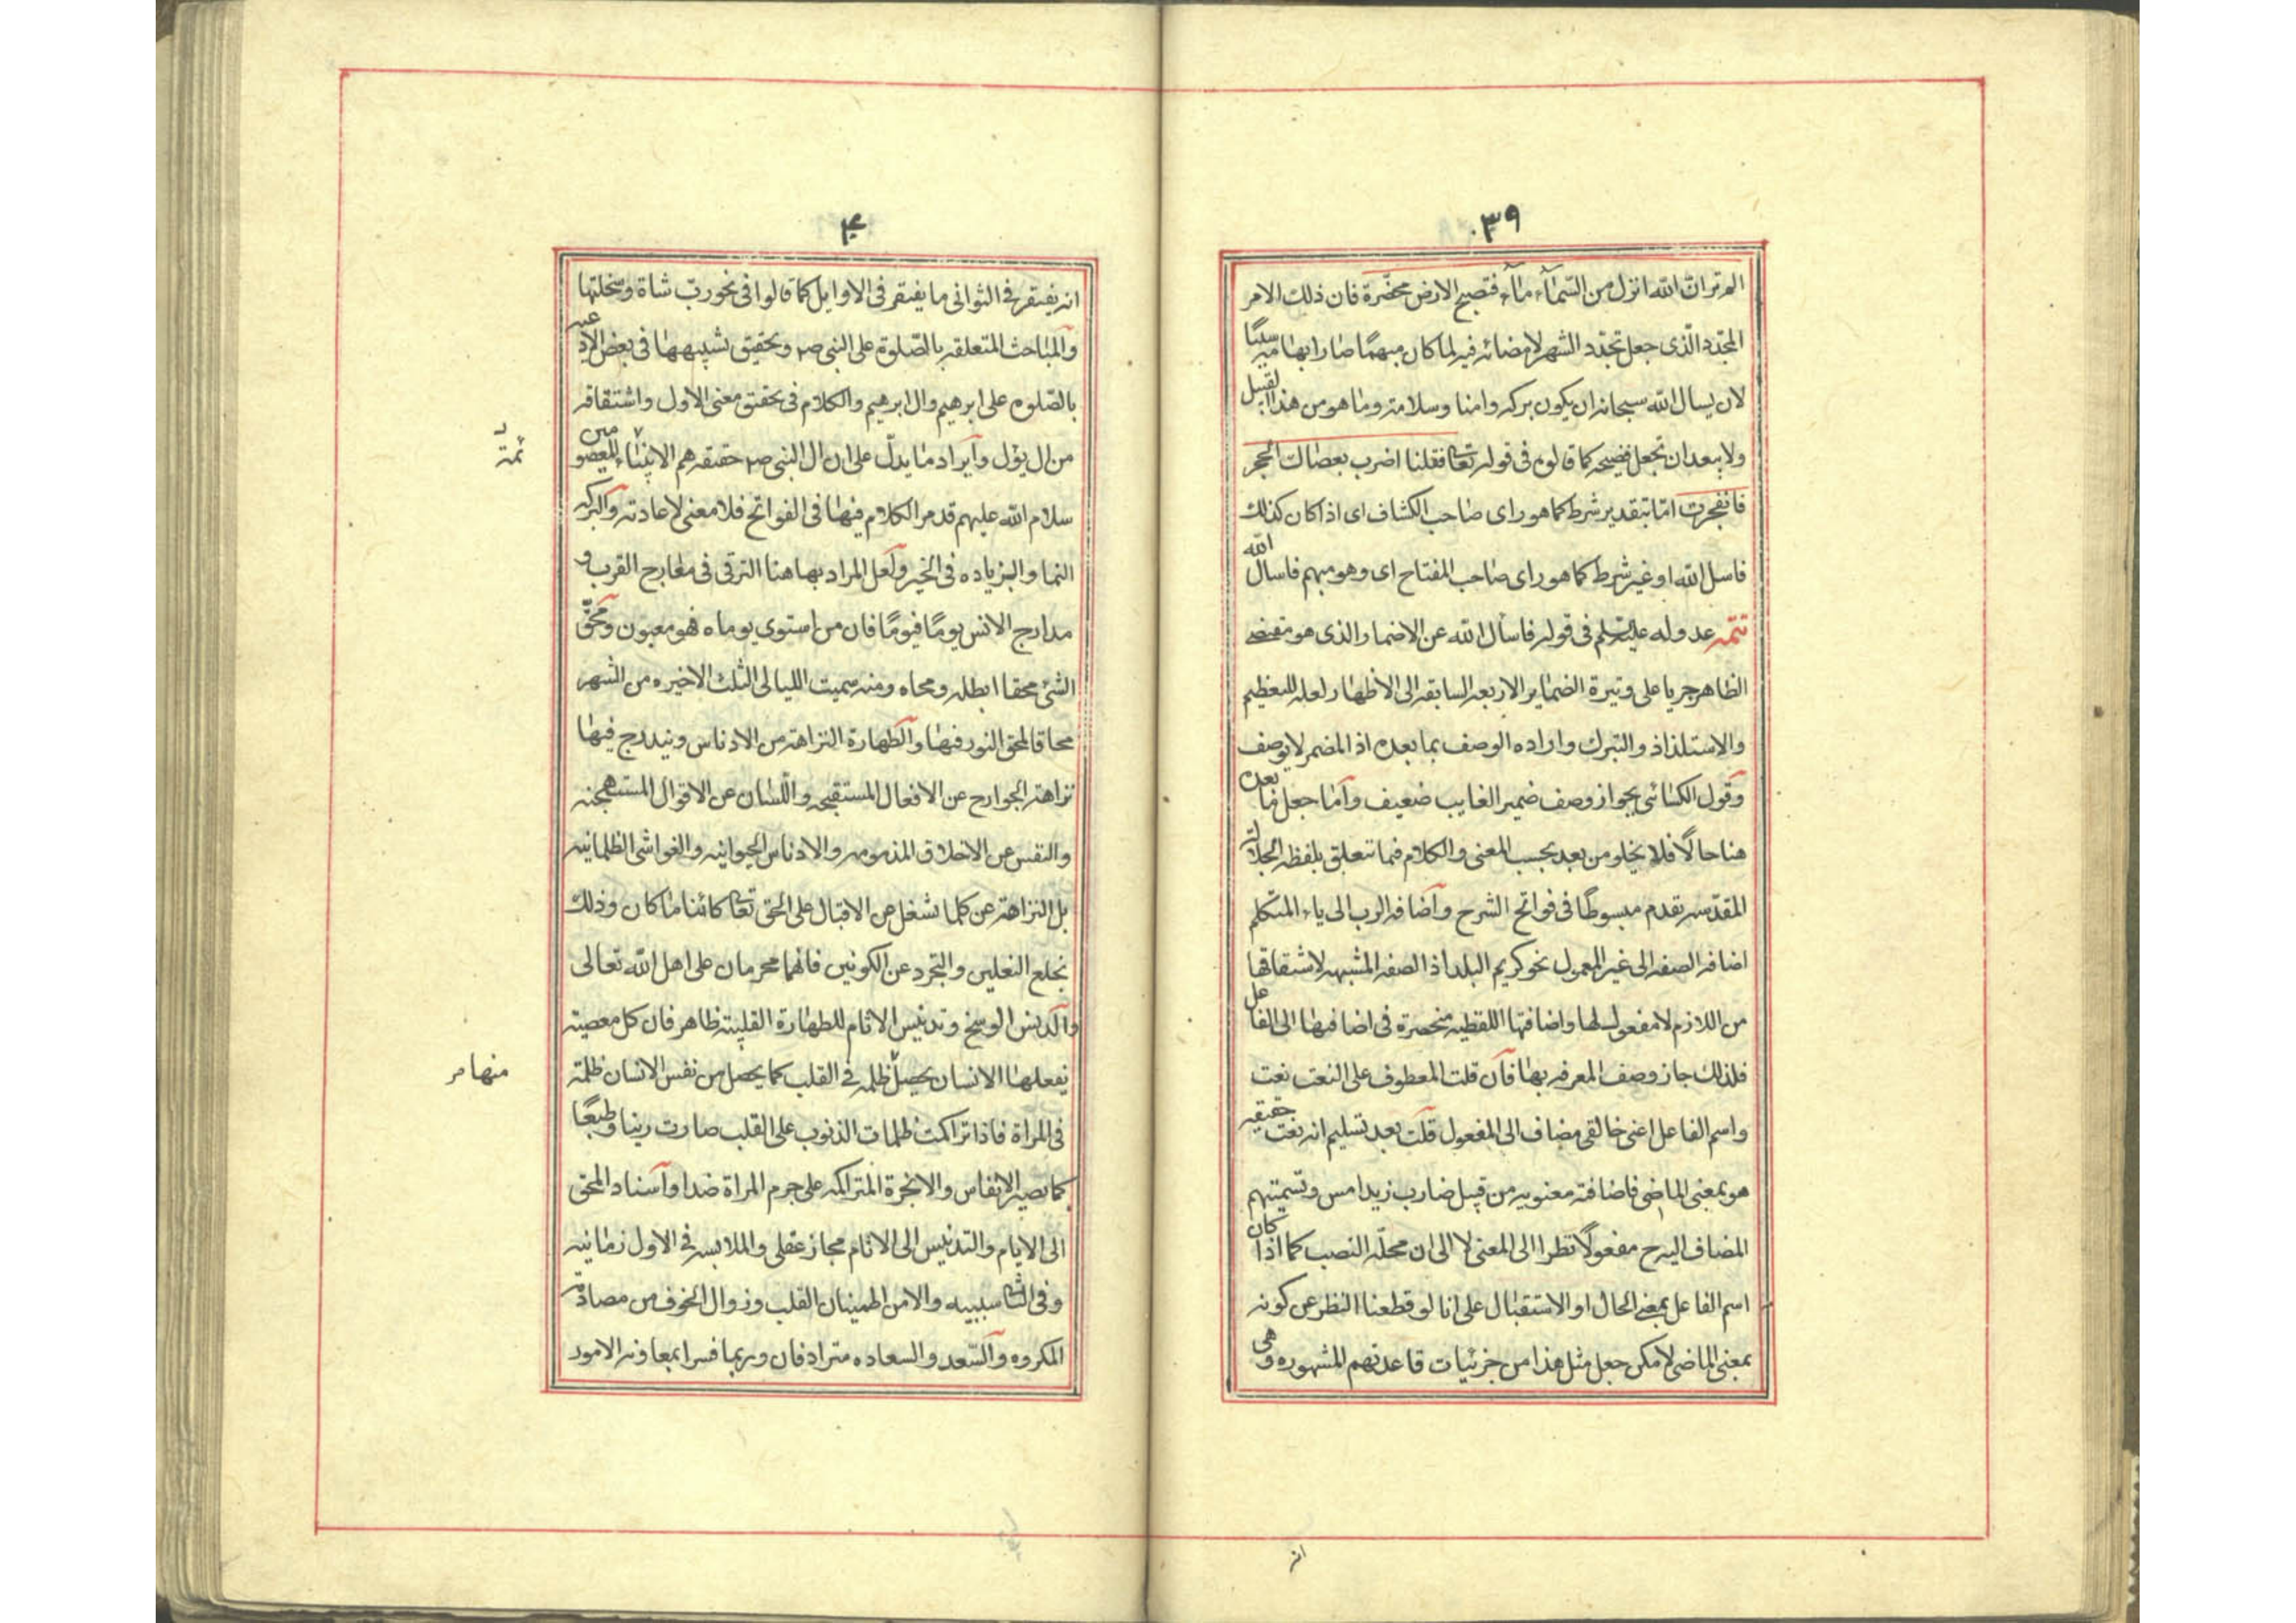 ٣٩
الم تر ان الله انزل من السّمآء مآء فتصبح الارض مخضّرة فان ذلك الامر
المجدد الّذى جعل تجدّد الشهر لامضائه فيه لما كان مبهمًا صار ابهامه سببًا
لان يسال الله سبحانه ان يكون بركه وامنا وسلامة وما هو من هذا القبيل
ولا يبعد ان تجعل فصيحه كما قالوه فى قوله تعا فقلنا اضرب بعصاك الحجر
فانفجرت امّا بتقدير شرط كما هو راى صاحب الكشاف اى اذا كان كذلك
فاسل الله او غير شرط كما هو راى صاحب المفتاح اى وهو مبهم فاسال الله
تتمّه عدوله عليه السّلم فى قوله فاسأل الله عن الاضمار الذى هو مقتضى
الظاهر جريا على وتيرة الضماير الاربعه السابقه الى الاظهار لعله للتعظيم
والاستلذاذ والتبرك واراده الوصف بما بعده اذ المضمر لا يوصف
وقول الكسائى بجواز وصف ضمير الغايب ضعيف وامّا جعل ما بعده
هنا حالًا فلا يخلو من بعد بحسب المعنى والكلام فيما تتعلق بلفظه الجلالة
المقدّسه تقدم مبسوطًا فى فواتح الشرح واضافه الرب الى ياء المتكلم
اضافه الصفه الى غير المعمول نحو كريم البلد اذ الصفه المشبهه لاشتقاقها
من اللازم لا مفعول لها واضافتها اللفظيه منحصرة فى اضافتها الى الفاعل
فلذلك جاز وصف المعرفه بها فان قلت المعطوف على النعت نعت
واسم الفاعل اعنى خالقى مضاف الى المفعول قلت بعد تسليم انه نعت حقيقه
هو بمعنى الماضى فاضافته معنويه من قبيل ضارب زيد امس وتسميتهم
المضاف اليه ح مفعولًا نظرا الى المعنى لا الى ان محلّه النصب كما اذا كان
اسم الفاعل بمعنى الحال او الاستقبال على انا لو قطعنا النظر عن كونه
بمعنى الماضى لامكن جعل مثل هذا من جزئيات قاعدتهم المشهوره وهى
انه
۴۰
انه يفتقر فى الثوانى ما يفتقر فى الاوايل كما قالوا فى نحو رب شاة وسخلتها
والمباحث المتعلقه بالصّلوة على النبى ص وتحقيق تشبيهها فى بعض الادعيه
بالصّلوه على ابرهيم وال ابرهيم والكلام فى تحقيق معنى الاول واشتقاقه
من ال يؤل وايراد ما يدلّ على ان ال النبى ص حقيقه هم الائمة المعصومين
سلام الله عليهم قد مر الكلام فيها فى الفواتح فلا معنى لاعادته والبركه
النما والزياده فى الخير ولعل المراد بها هنا الترقى فى معارج القرب و
مدارج الانس يومًا فيومًا فان من استوى يوماه فهو مغبون ومحق
الشئ محقا ابطله ومحاه ومنه سميت الليالى الثلث الاخيره من الشهر
محاقا لمحق النور فيها والطهارة النزاهة من الادناس ويندرج فيها
نزاهة الجوارح عن الافعال المستقبحه واللّسان عن الاقوال المستهجنه
والنفس عن الاخلاق المذمومه والادناس الحيوانيه والغواشى الظلمانيه
بل النزاهة عن كلما تشغل عن الاقبال على الحق تعا كائنا ما كان وذلك
بخلع النعلين والتجرد عن الكونين فانهما محرمان على اهل الله تعالى
والدنس الوسخ وتدنيس الاثام للطهارة القلبيته ظاهر فان كل معصية
يفعلها الانسان يحصل ظلمه فى القلب كما يحصل من نفس الانسان ظلمة
فى المراة فاذا تراكمت ظلمات الذنوب على القلب صارت رينا وطبعًا
كما يصير الانفاس والابخرة المتراكمه على جرم المراة ضدا واسناد المحق
الى الايام والتدنيس الى الاثام مجاز عقلى والملابسه فى الاول زمانيه
وفى الثانى سببيه والامن اطمينان القلب وزوال الخوف من مصادفة
المكروه والسّعد والسعاده مترادفان وربما فسرا بمعاونه الامور
ئمة
منها مر